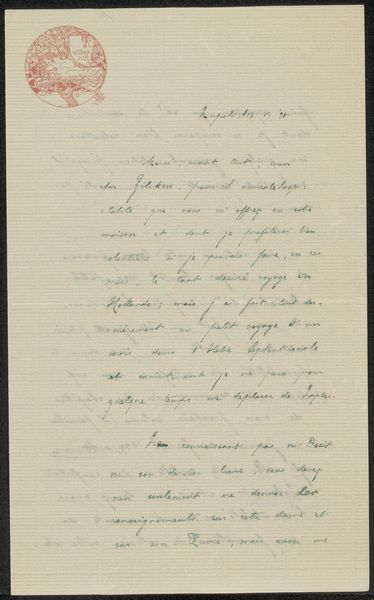 Napoli,
Merci, avant tout, mon
cher Zilcken, pour l'amicale hospi-
talité que vous m'offrez en votre
maison et dont je profiterai bien
volontiers si je pouvais faire, en ces
le tant désiré voyage en
Hollande; mais j'ai fait tout der-
nièrement un petit voyage d'un
mois dans l'Italie Septentrionale
et maintenant je ne peux pour
quelque temps me déplacer de Naples.
Ne connaissant pas
ni son dernier livre vous devez
non seulement me donner
renseignements sur cette dame et
sur son mais aussi me